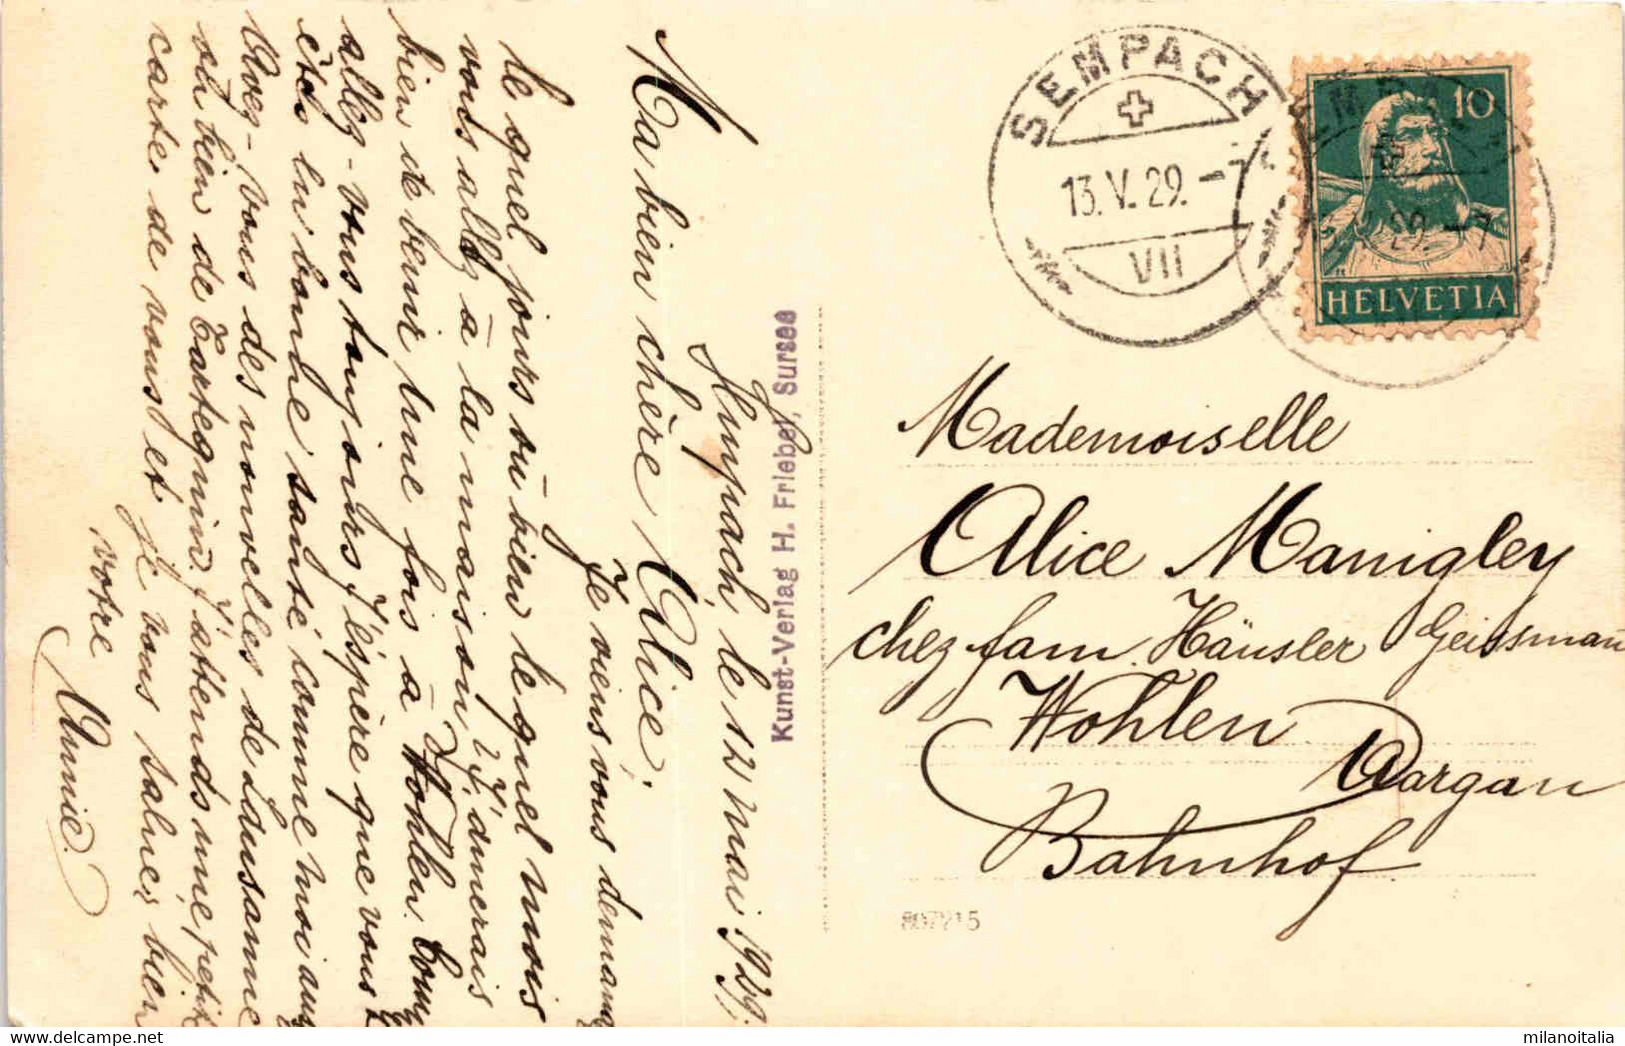 Sempach le 12 mai 1929.
Ma bien chère Alice!
Je viens vous demander
le quel jours ou bien le quel mois
vous allez à la maison? J'aimerais
bien te venir une fois à Wohlen. Comment
allez-vous toujours, j'éspère que vous
étés en bonne santé comme moi aussi
Avez-vous des nouvelles de Lausanne
ou bien de Tartegnin. J'attends une petite
carte de vous et je vous salue, bien
votre
Annie.
Kunst-Verlag H. Friebel, Sursee
SEMPACH
13.V.29.-7
VII
10
HELVETIA
Mademoiselle
Alice Manigley
chez fam. Häusler Geissmann
Wohlen
Aargau
Bahnhof.
807215
milanoitalia